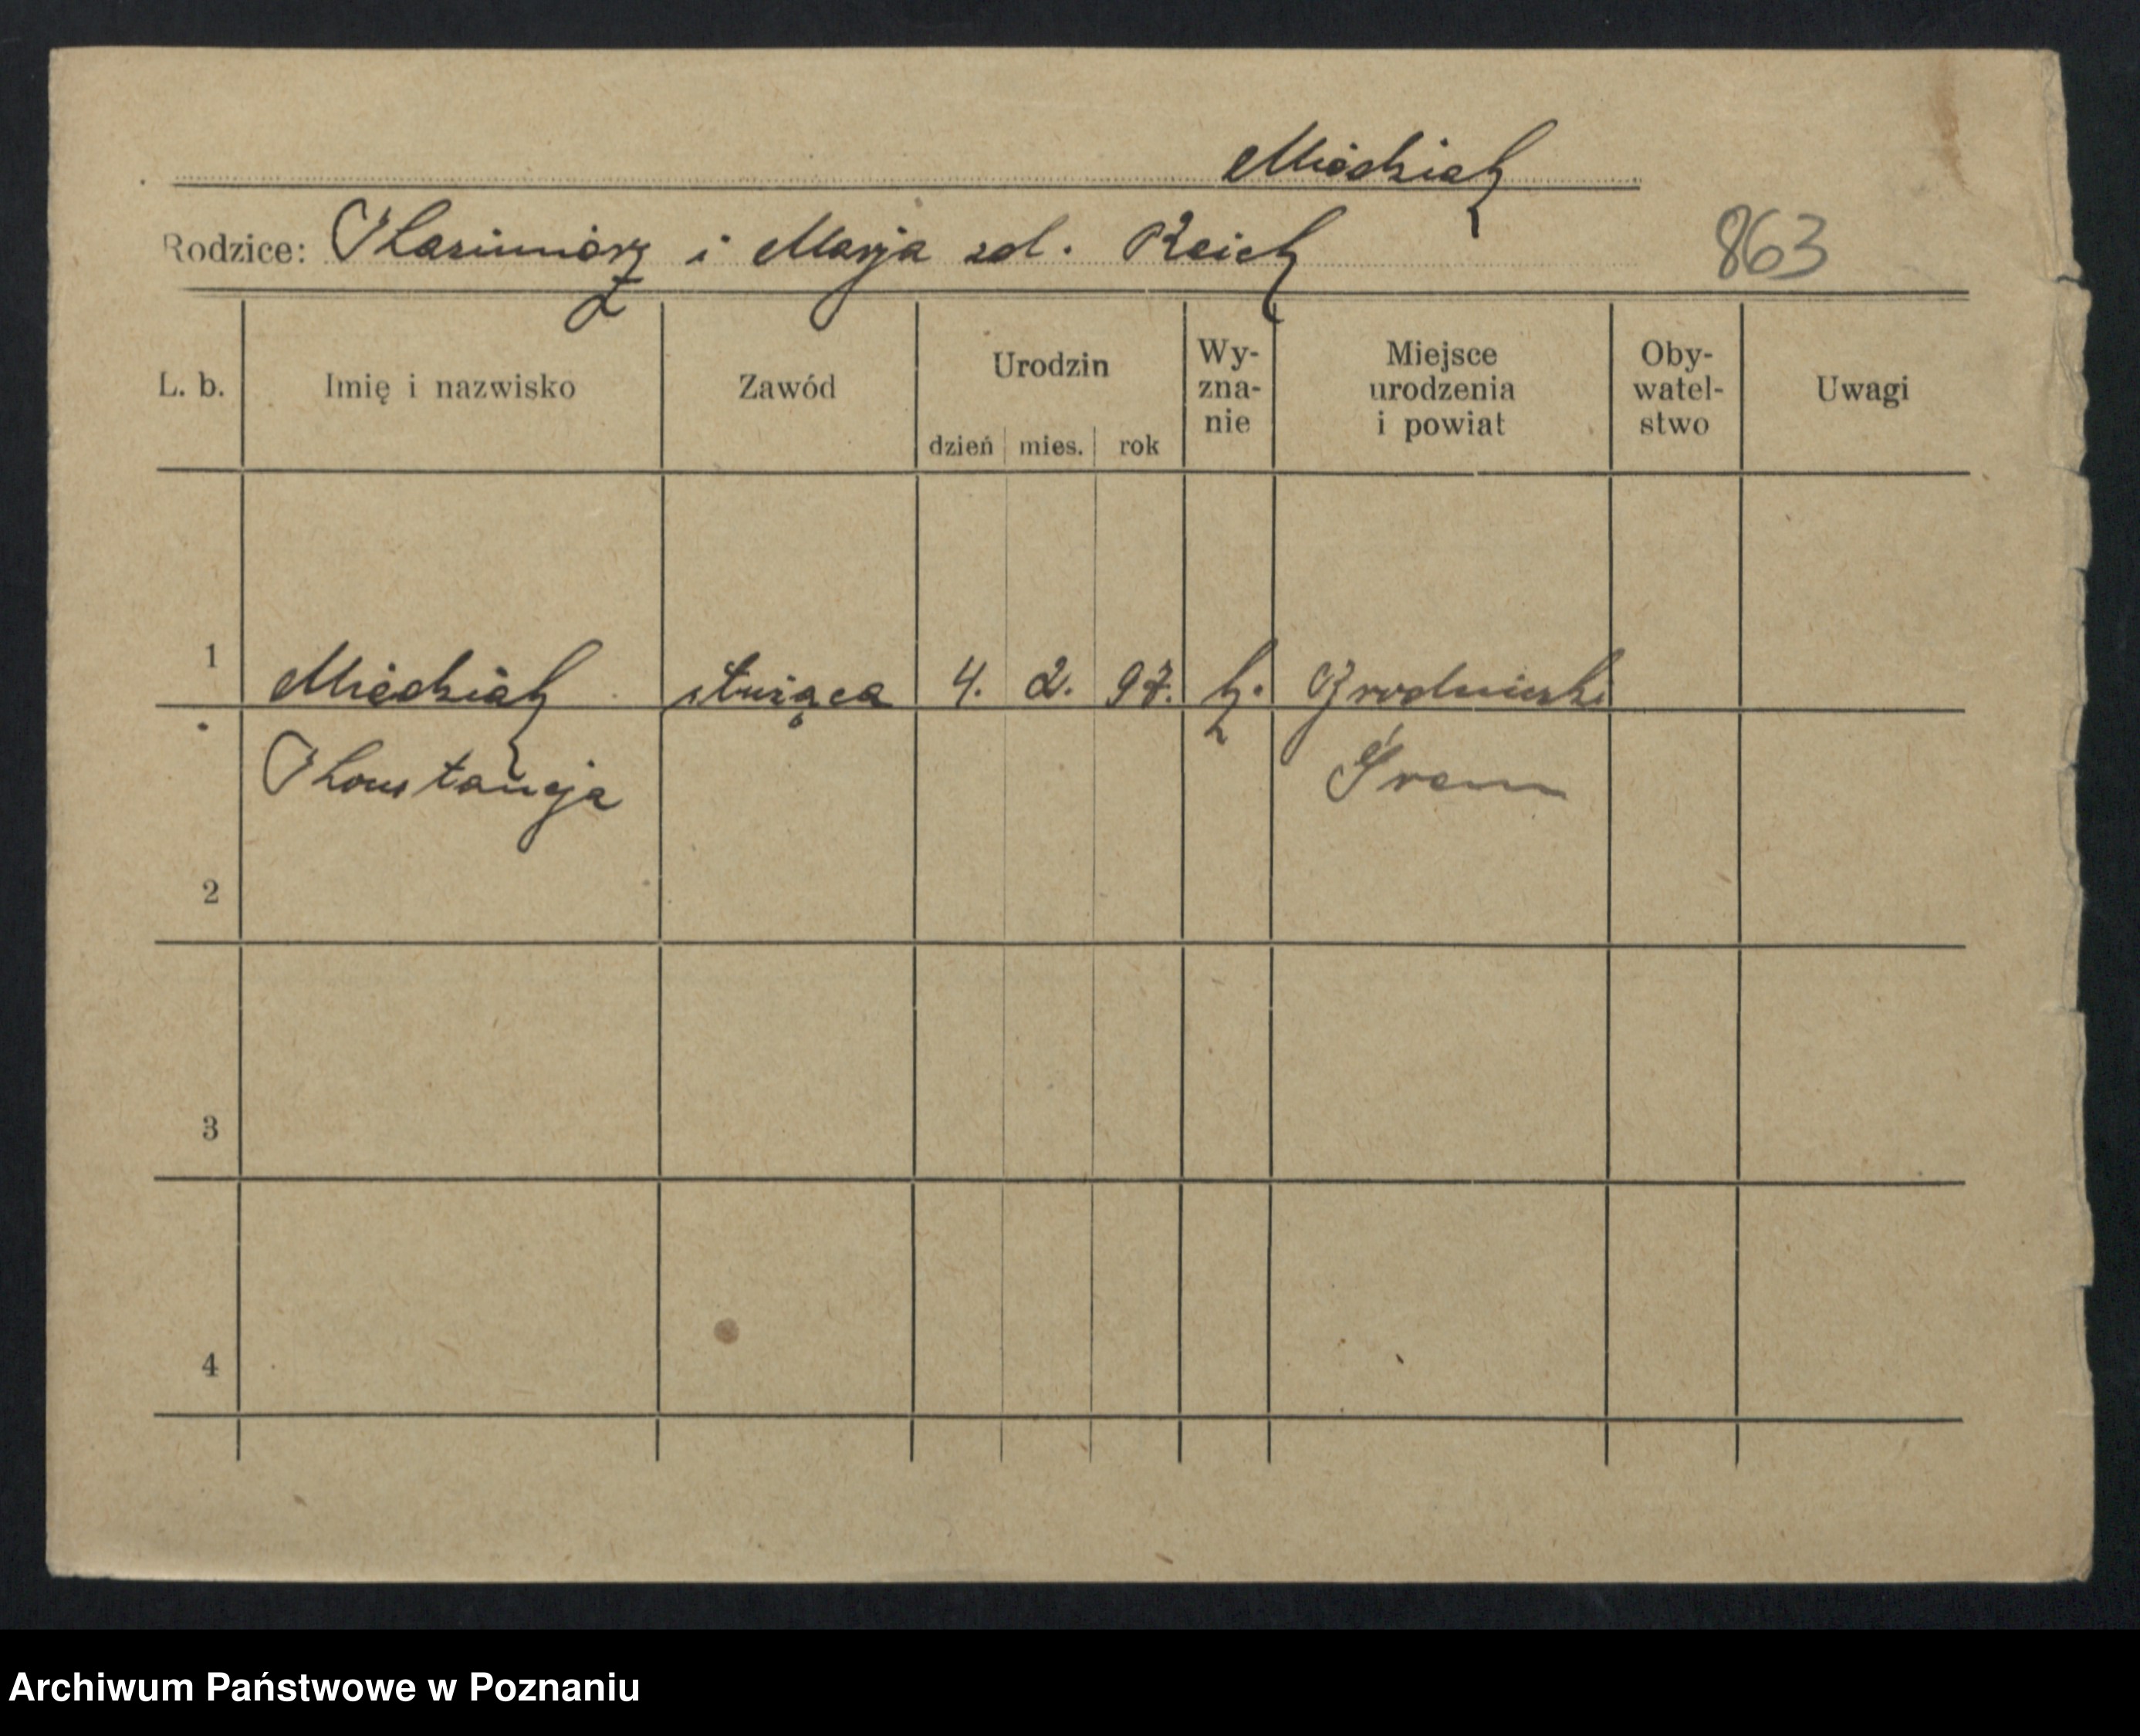 Miedziak
Rodzice: Kazimierz i Marja zd. Reich
863
L. b. Imię i nazwisko Zawód Urodzin dzień mies. rok Wy-zna-nie Miejsce urodzenia i powiat Oby-watel-stwo Uwagi
1 Miedziak służąca 4. 2. 97. k. Grodniczki
Konstancja Śrem
2
3
4
Archiwum Państwowe w Poznaniu